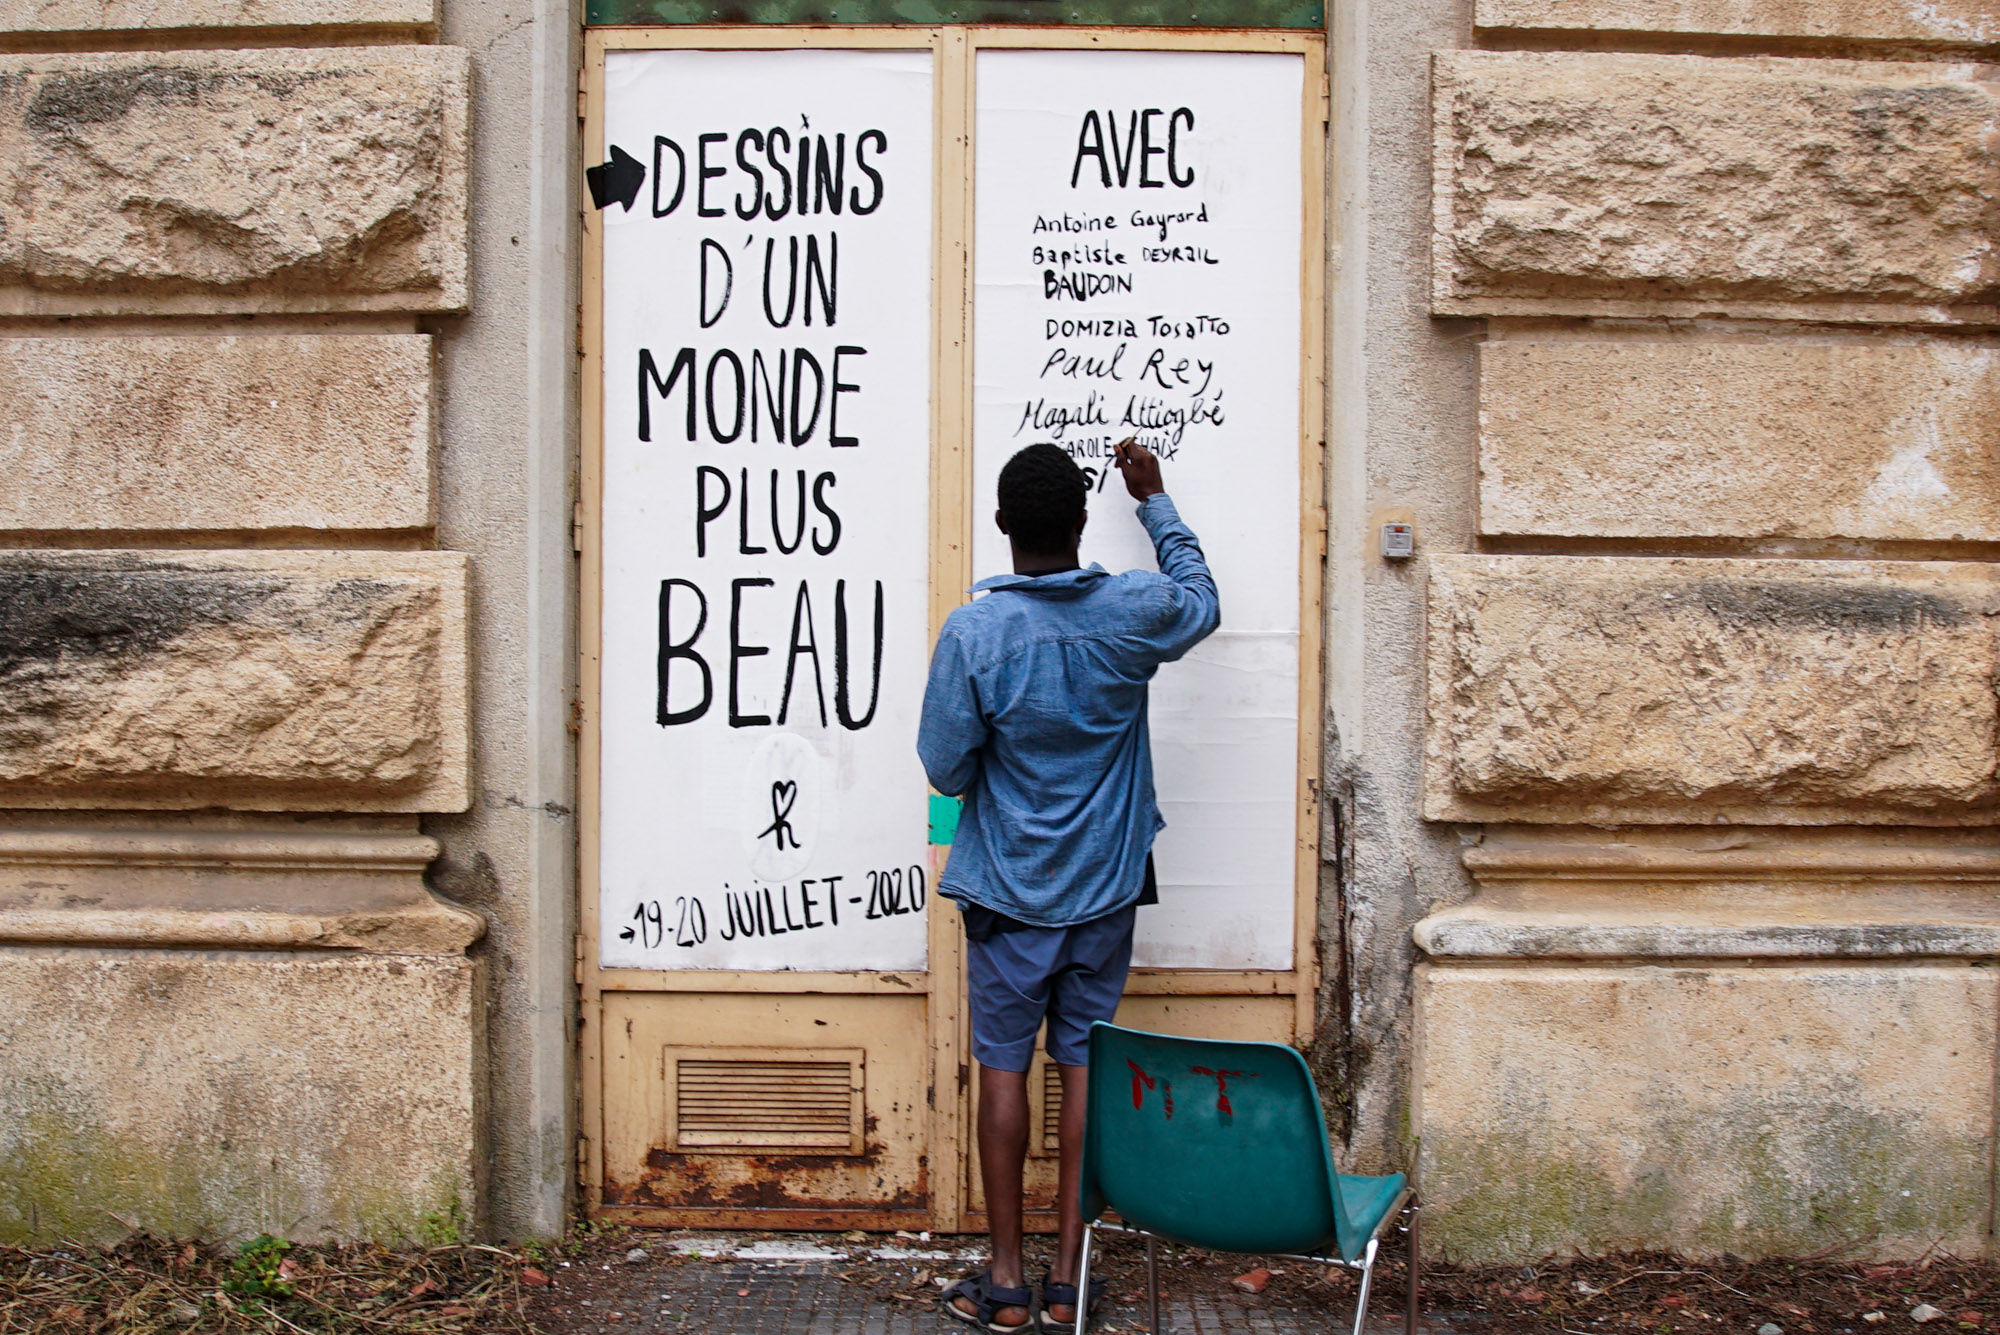 DESSiNS
D'UN
MONDE
PLUS
BEAU
h
19-20 JUILLET-2020
AVEC
Antoine Gayrard
Baptiste DEYRAIL
BAUDOIN
DOMIZIA TOSATTO
Paul Rey,
Magali Attiogbé
MT